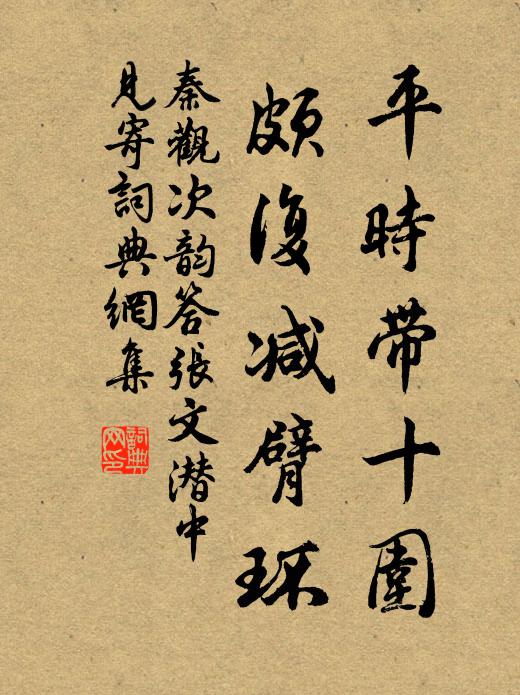 平時帶十圍
頗復减臂環
秦觀次韵答張文潜中
見寄詞典網集
詞典网印